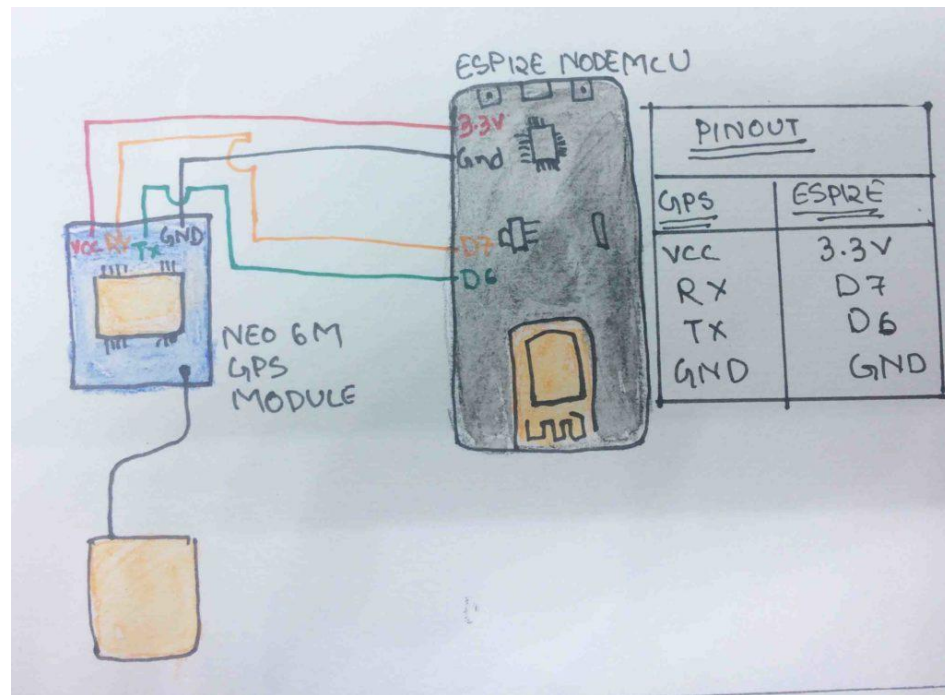 ESP12E NODEMCU
3.3V
Gnd
D7
D6
VCC RX TX GND
NEO 6M
GPS
MODULE
PINOUT
GPS ESP12E
VCC 3.3V
RX D7
TX D6
GND GND